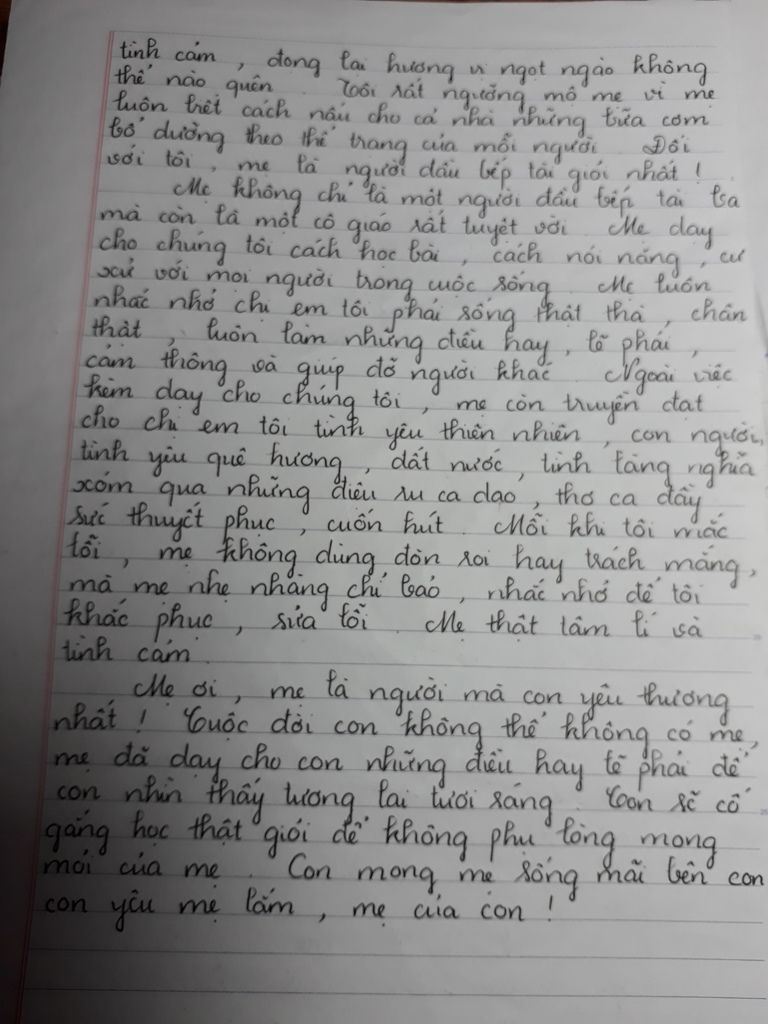 tình cảm , đong lại hương vị ngọt ngào không
thể nào quên . Tôi rất ngưỡng mộ mẹ vì mẹ
luôn biết cách nấu cho cả nhà những bữa cơm
bổ dưỡng theo thể trạng của mỗi người . Đối
với tôi , mẹ là người đầu bếp tài giỏi nhất !
Mẹ không chỉ là một người đầu bếp tài ba
mà còn là một cô giáo rất tuyệt vời . Mẹ dạy
cho chúng tôi cách học bài , cách nói năng , cư
xử với mọi người trong cuộc sống . Mẹ luôn
nhắc nhở chị em tôi phải sống thật thà , chân
thật , luôn làm những điều hay , lẽ phải ,
cảm thông và giúp đỡ người khác . Ngoài việc
kèm dạy cho chúng tôi , mẹ còn truyền đạt
cho chị em tôi tình yêu thiên nhiên , con người,
tình yêu quê hương , đất nước , tình làng nghĩa
xóm qua những điệu ru ca dao , thơ ca đầy
sức thuyết phục , cuốn hút . Mỗi khi tôi mắc
lỗi , mẹ không dùng đòn roi hay trách mắng ,
mà mẹ nhẹ nhàng chỉ bảo , nhắc nhở để tôi
khắc phục , sửa lỗi . Mẹ thật tâm lí và
tình cảm .
Mẹ ơi , mẹ là người mà con yêu thương
nhất ! Cuộc đời con không thể không có mẹ,
mẹ đã dạy cho con những điều hay lẽ phải để
con nhìn thấy tương lai tươi sáng . Con sẽ cố
gắng học thật giỏi để không phụ lòng mong
mỏi của mẹ . Con mong mẹ sống mãi bên con
con yêu mẹ lắm , mẹ của con !